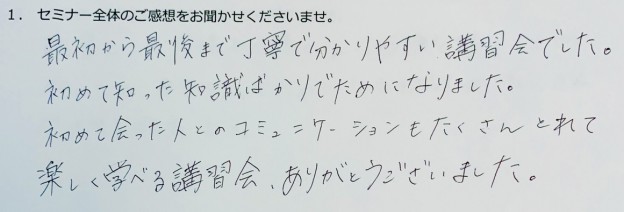 1. セミナー全体のご感想をお聞かせくださいませ。
最初から最後まで丁寧で分かりやすい講習会でした。
初めて知った知識ばかりでためになりました。
初めて会った人とのコミュニケーションもたくさんとれて
楽しく学べる講習会、ありがとうございました。